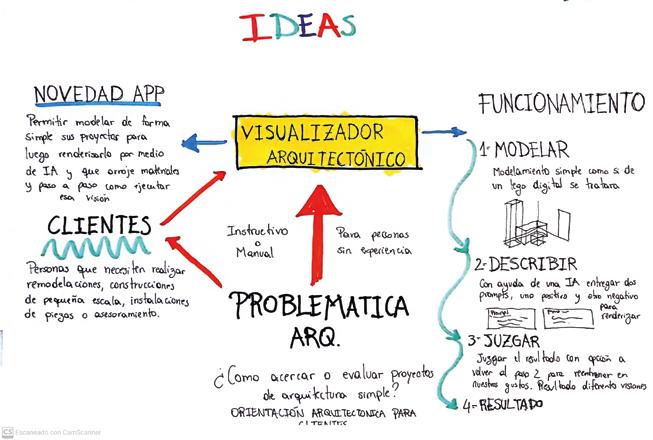 IDEAS
NOVEDAD APP
Permitir modelar de forma
simple sus proyectos para
luego renderizarlo por medio
de IA y que arroje materiales
y paso a paso como ejecutar
esa visión
CLIENTES
Personas que necesiten realizar
remodelaciones, construcciones
de pequeña escala, instalaciones
de piezas o asesoramiento.
VISUALIZADOR
ARQUITECTÓNICO
Instructivo
o
Manual
Para personas
sin experiencia
PROBLEMATICA
ARQ.
¿Como acercar o evaluar proyectos
de arquitectura simple?
ORIENTACIÓN ARQUITECTONICA PARA
CLIENTES
FUNCIONAMIENTO
1- MODELAR
Modelamiento simple como si de
un lego digital se tratara
2- DESCRIBIR
Con ayuda de una IA entregar dos
prompts, uno positivo y otro negativo
para
renderizar
3- JUZGAR
Juzgar el resultado con opción a
volver al paso 2 para reentrenar en
nuestros gustos. Resultado diferento visiones
4- RESULTADO
CS Escaneado con CamScanner